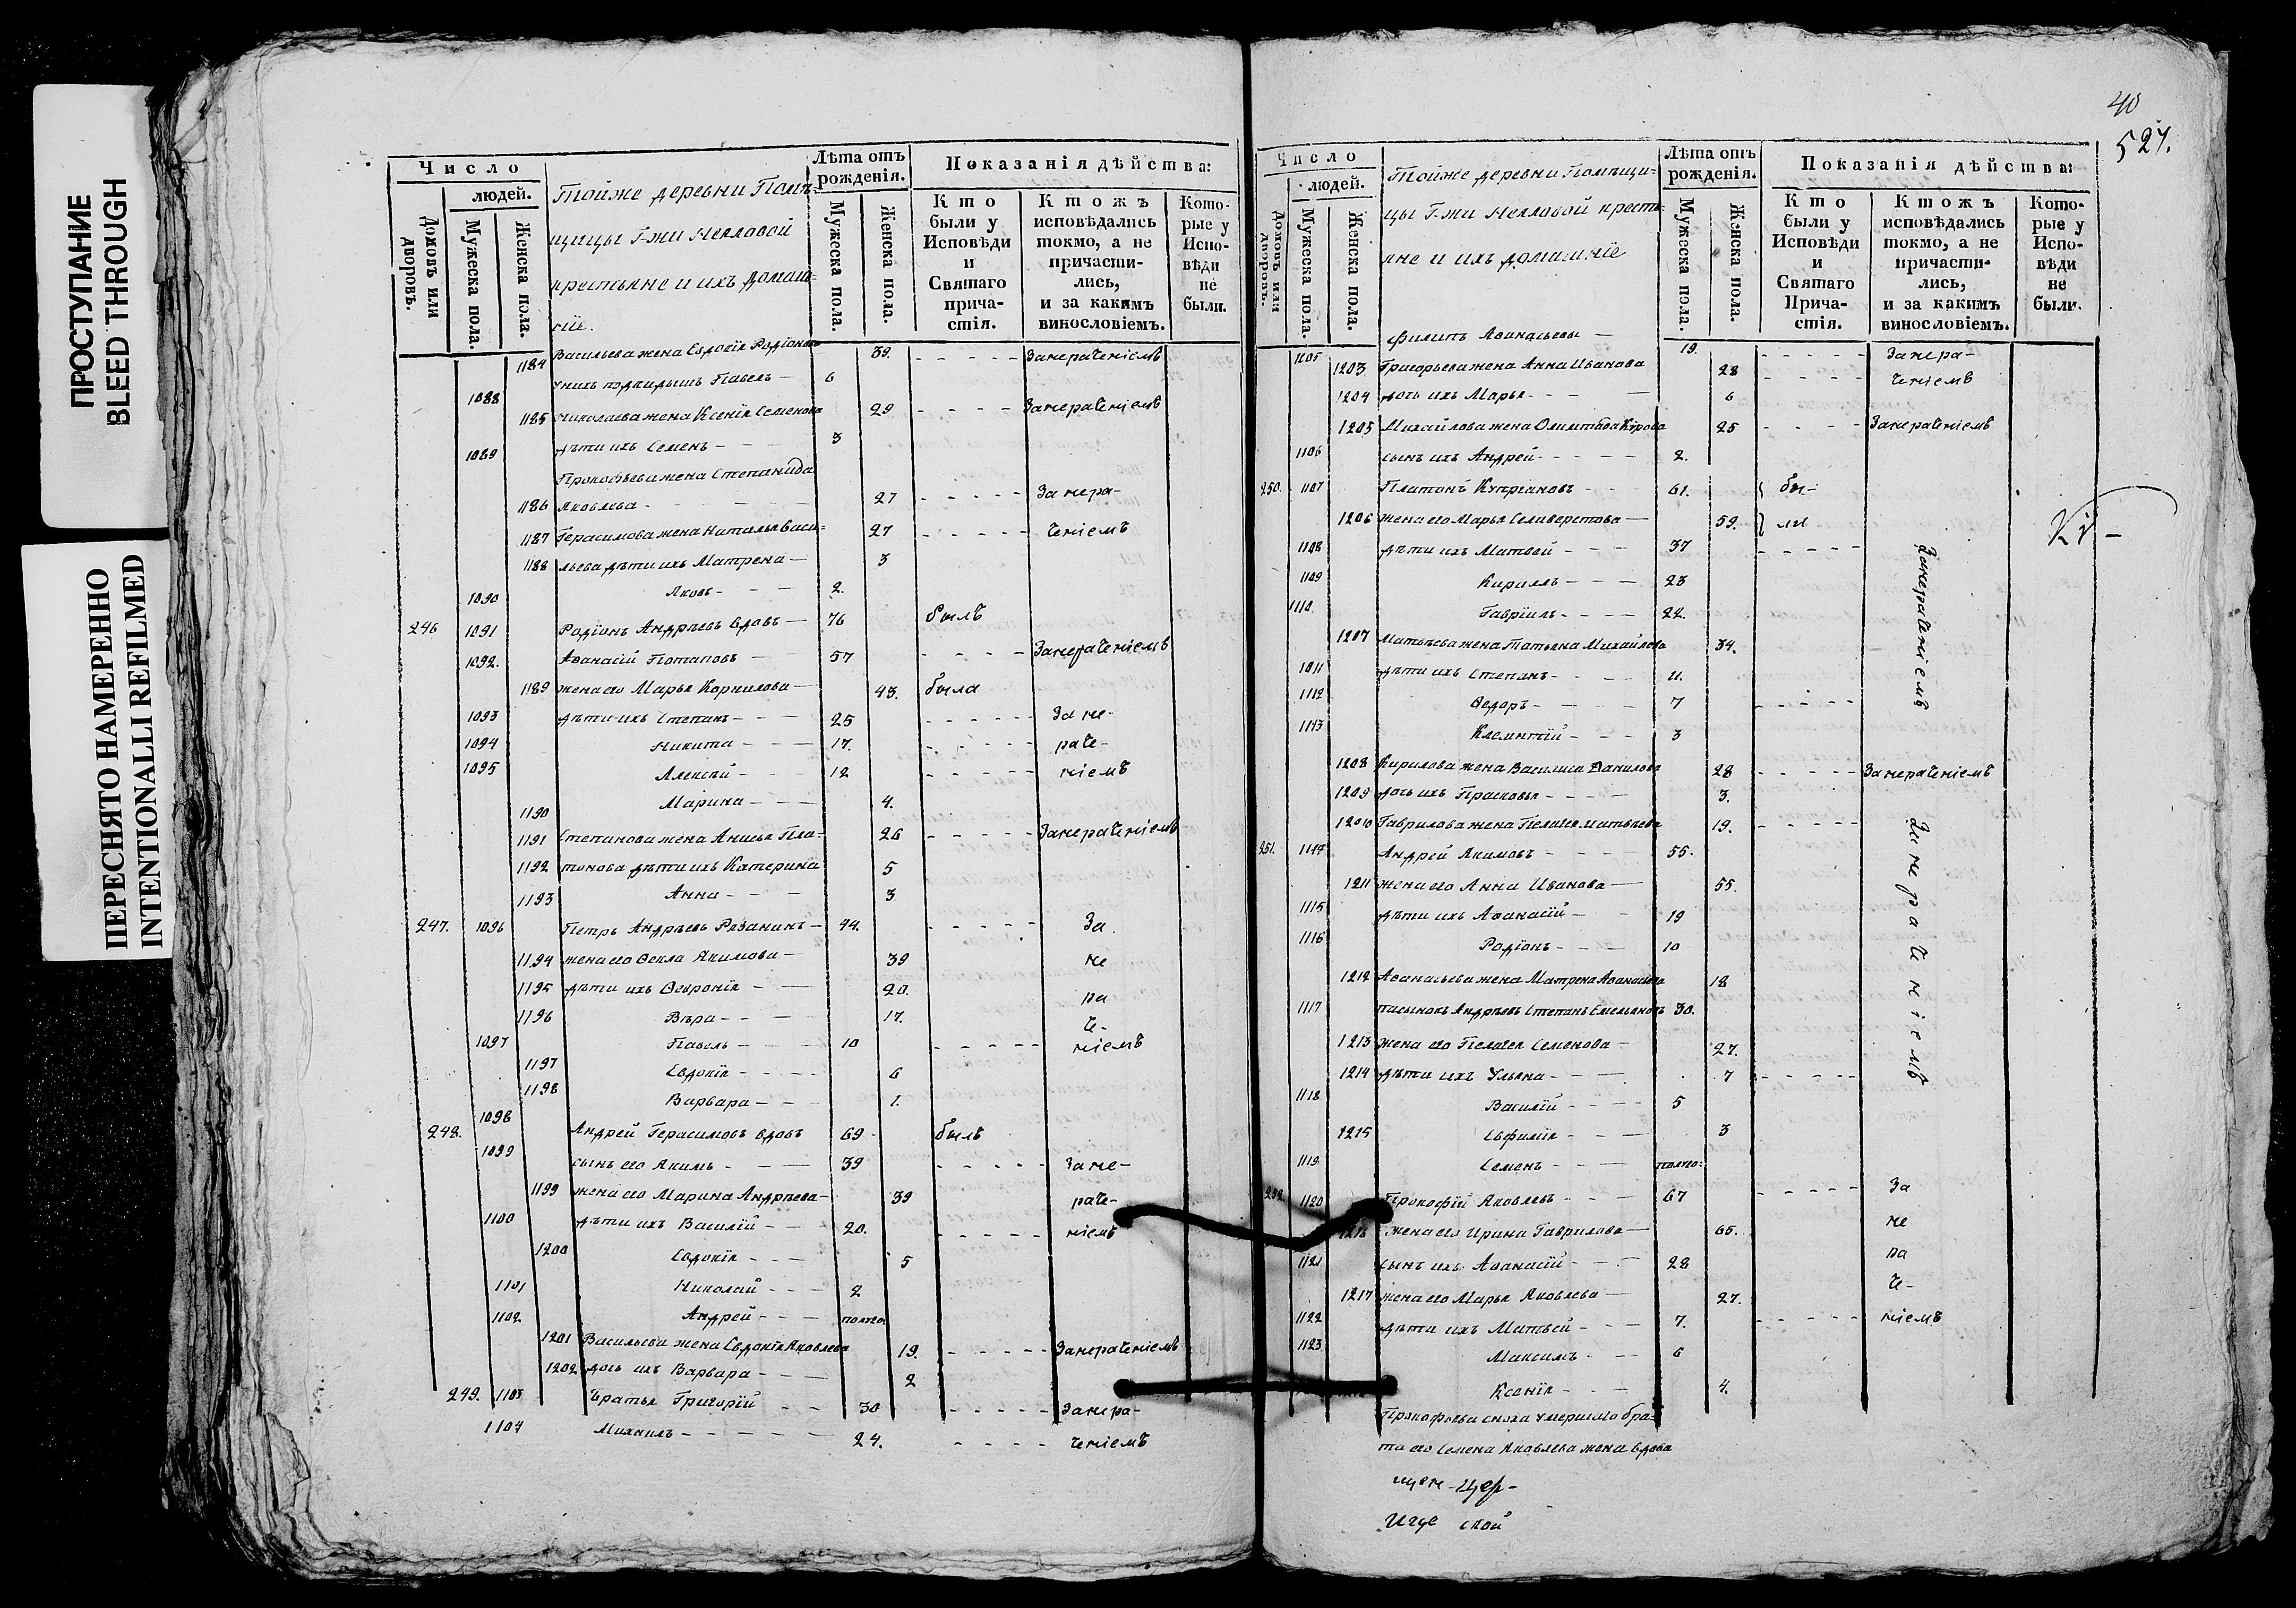 ПРОСТУПАНИЕ
BLEED THROUGH
ПЕРЕСНЯТО НАМЕРЕННО
INTENTIONALLI REFILMED
Число
людей.
Домовъ или дворовъ.
Мужеска пола.
Женска пола.
Тойже деревни Помѣ-
щицы Г-жи Нелловой
крестьяне и ихъ домаш-
нїе.
Лѣта отъ рожденія.
Мужеска пола.
Женска пола.
Показанія дѣйства:
Кто были у Исповѣди и Святаго причастія.
Ктожъ исповѣдались токмо, а не причастились, и за какимъ винословіемъ.
Которые у Исповѣди не были.
1184 Васильева жена Евдокія Родіонова 39. Занераченіемъ
1088 у нихъ подкидышъ Павелъ 6
1185 Николаева жена Ксенія Семенова 29 Занераченіемъ
1089 дѣти ихъ Семенъ 3
Прокофьева жена Степанида
1186 Яковлева 27 За нера-
1187 Герасимова жена Наталья Васи= 27 ченіемъ
1188 льева дѣти ихъ Матрена 3
1090 Яковъ 2.
246 1091 Родіонъ Андрѣевъ вдовъ 76 былъ
1092. Аѳанасій Потаповъ 57 Занераченіемъ
1189 жена его Марья Корнилова 43. была
1093 дѣти ихъ Степанъ 25 За не-
1094 Никита 17. раче-
1095 Алексѣй 12 ніемъ
1190 Марина 4.
1191 Степанова жена Анисья Пла- 26 Занераченіемъ
1192 тонова дѣти ихъ Катерина 5
1193 Анна 3
247. 1096 Петръ Андрѣевъ Рязанинъ 44. За
1194 жена его Ѳекла Якимова 39 не
1195 дѣти ихъ Ѳевронія 20. ра
1196 Вѣра 17. че-
1097 Павелъ 10 ніемъ
1197 Евдокія 6
1198 Варвара 1.
248. 1098 Андрей Герасимовъ вдовъ 69 былъ
1099 сынъ его Акимъ 39 За не-
1199 жена его Марина Андрѣева 39 раче-
1100 дѣти ихъ Василій 20. ніемъ
1200 Евдокія 5
1101 Николай 2
1102. Андрей полго.
1201 Васильева жена Евдокія Яковлева 19. Занераченіемъ
1202 дочь ихъ Варвара 2
249. 1103 Братья Григорій 30 Занера-
1104 Михаилъ 24. ченіемъ
40
527.
Число
людей.
Домовъ или дворовъ.
Мужеска пола.
Женска пола.
Тойже деревни Помѣщи-
цы Г-жи Нелловой кресть-
яне и ихъ домашніе
Лѣта отъ рожденія.
Мужеска пола.
Женска пола.
Показанія дѣйства:
Кто были у Исповѣди и Святаго Причастія.
Ктожъ исповѣдались токмо, а не причастились, и за какимъ винословіемъ.
Которые у Исповѣди не были.
1105 Филипъ Аѳанасьевы 19. Занера-
1203 Григорьева жена Анна Иванова 28 ченіемъ
1204 дочь ихъ Марья 6
1205 Михайлова жена Олимпіада 25 Занераченіемъ
1106 сынъ ихъ Андрей 2.
250. 1107 Платонъ Купріановъ 61. бы-
1206 жена его Марья Селиверстова 59. ли
1108 дѣти ихъ Матвей 37 Занераченіемъ
1109 Кириллъ 23
1110 Гавріилъ 22.
1207 Матвѣева жена Татьяна Михайлова 34.
1011 дѣти ихъ Степанъ 11.
1112 Ѳедоръ 7
1113 Климнтій 3
1208 Кирилова жена Василиса Данилова 28 Занераченіемъ
1209 дочь ихъ Прасковья 3.
12010 Гаврилова жена Пелагея Матвѣева 19. Занераченіемъ
251. 1114 Андрей Якимовъ 55.
1211 жена его Анна Иванова 55.
1115 дѣти ихъ Аѳанасій 19
1116 Родіонъ 10
1212 Аѳанасьева жена Матрена Аѳанасьева 18
1117 пасынокъ Андрѣевъ Степанъ Емельяновъ 30.
1213 жена его Пелагея Семенова 27.
1214 дѣти ихъ Ульяна 7
1118 Василій 5
1215 Евфимія 3
1119. Семенъ полго.
252 1120 Прокофій Яковлевъ 67 За
1216 жена его Ирина Гаврилова 65. не
1121 сынъ ихъ Аѳанасій 28 ра
1217 жена его Марья Яковлева 27. че-
1122 дѣти ихъ Матвей 7. ніемъ
1123 Максимъ 6
Ксенія 4.
Прокофьева сноха умершаго бра-
та его Семена Яковлева жена вдова